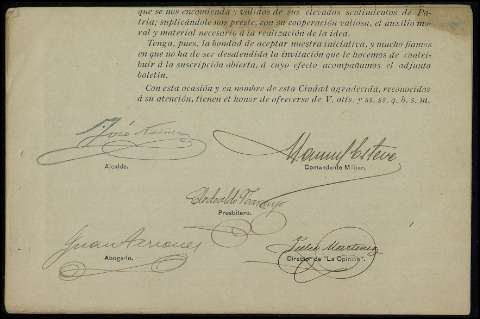 que se nos encomienda y válidos de sus elevados sentimientos de Pa-
tria; suplicándole nos preste, con su cooperación valiosa, el auxilio mo-
ral y material necesario á la realización de la idea.
Tenga, pues, la bondad de aceptar nuestra iniciativa, y mucho fiamos
en que no ha de ser desatendida la invitación que le hacemos de contri-
buir á la suscripción abierta, á cuyo efecto acompañamos el adjunto
boletín.
Con esta ocasión y en nombre de esta Ciudad agradecida, reconocidos
á su atención, tienen el honor de ofrecerse de V. atts. y ss. ss. q. b. s. m.
José
Manuel Esteve
Alcalde.
Comandante Militar.
Presbítero.
Juan
Julio Martinez
Abogado.
Director de "La Opinión".